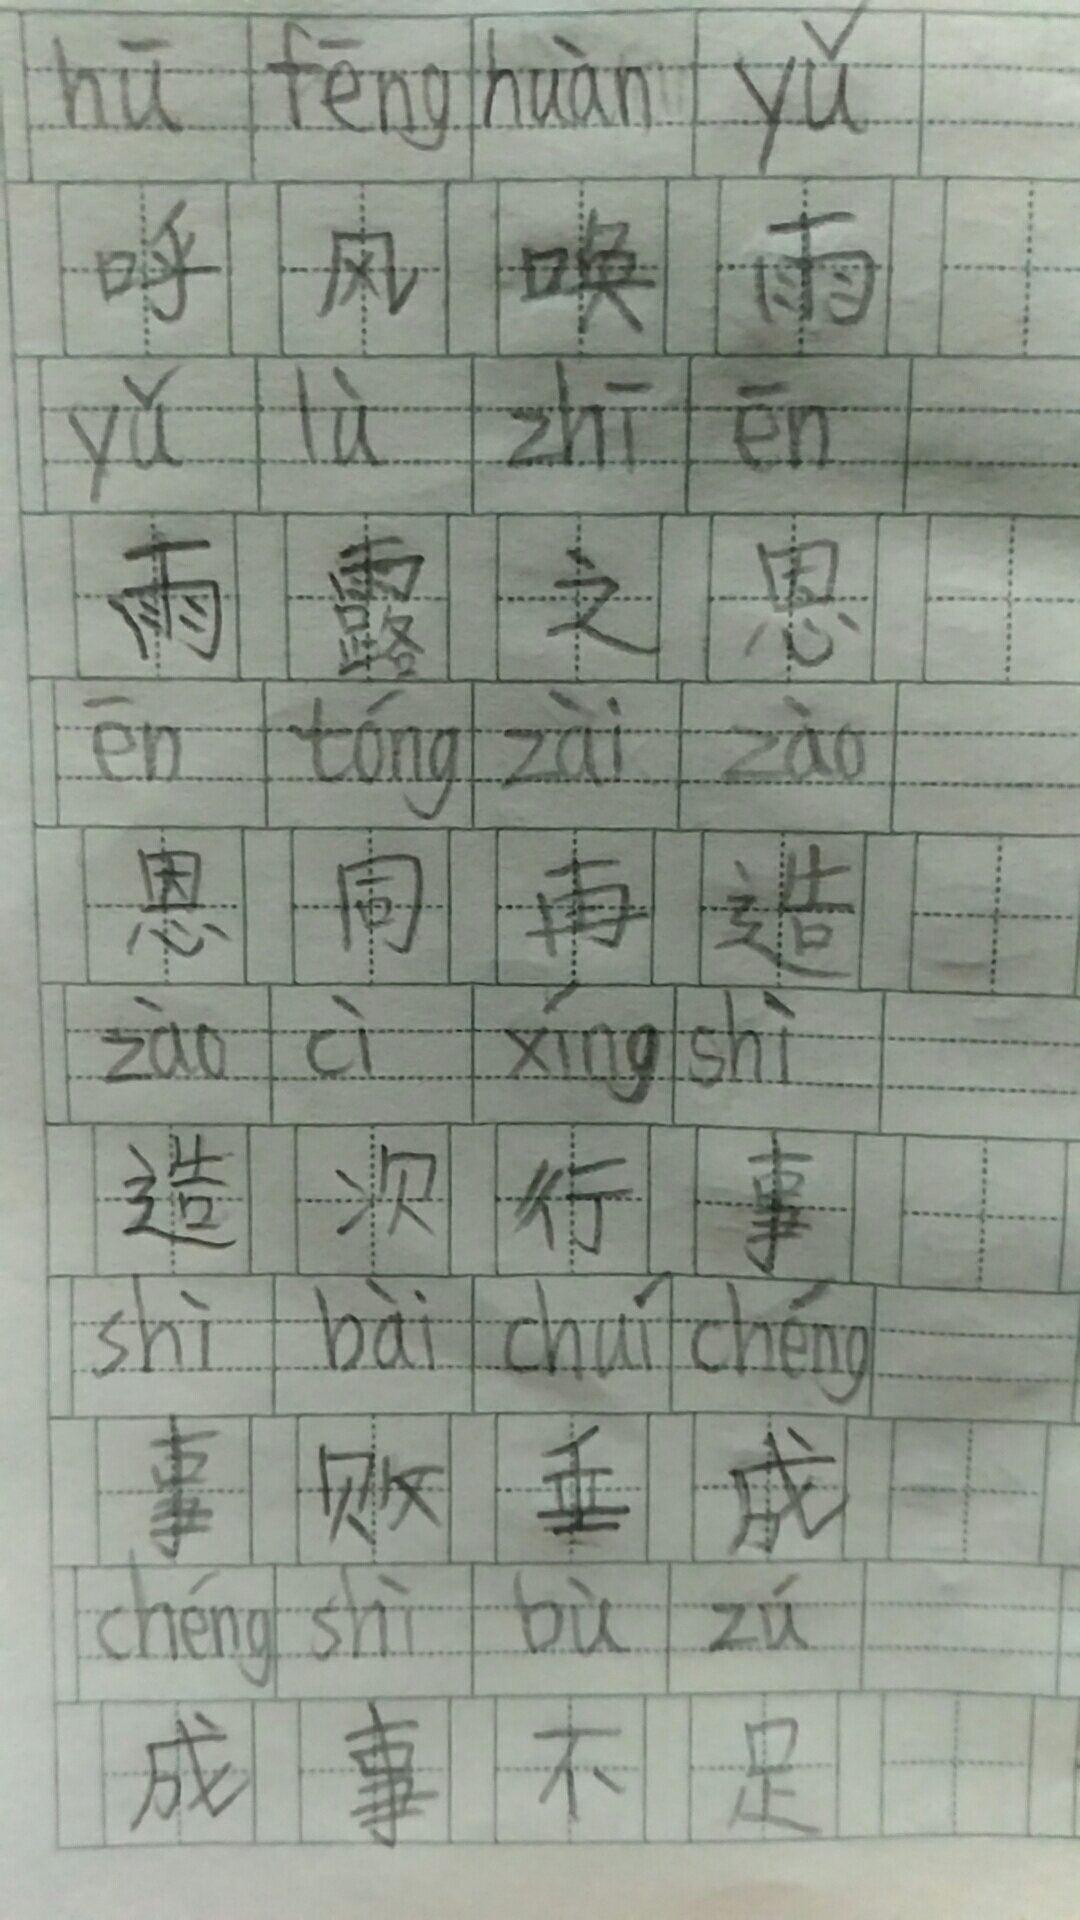 hū fēng huàn yǔ
呼风唤雨
yǔ lù zhī ēn
雨露之恩
ēn tóng zài zào
恩同再造
zào cì xíng shì
造次行事
shì bài chuí chéng
事败垂成
chéng shì bù zú
成事不足